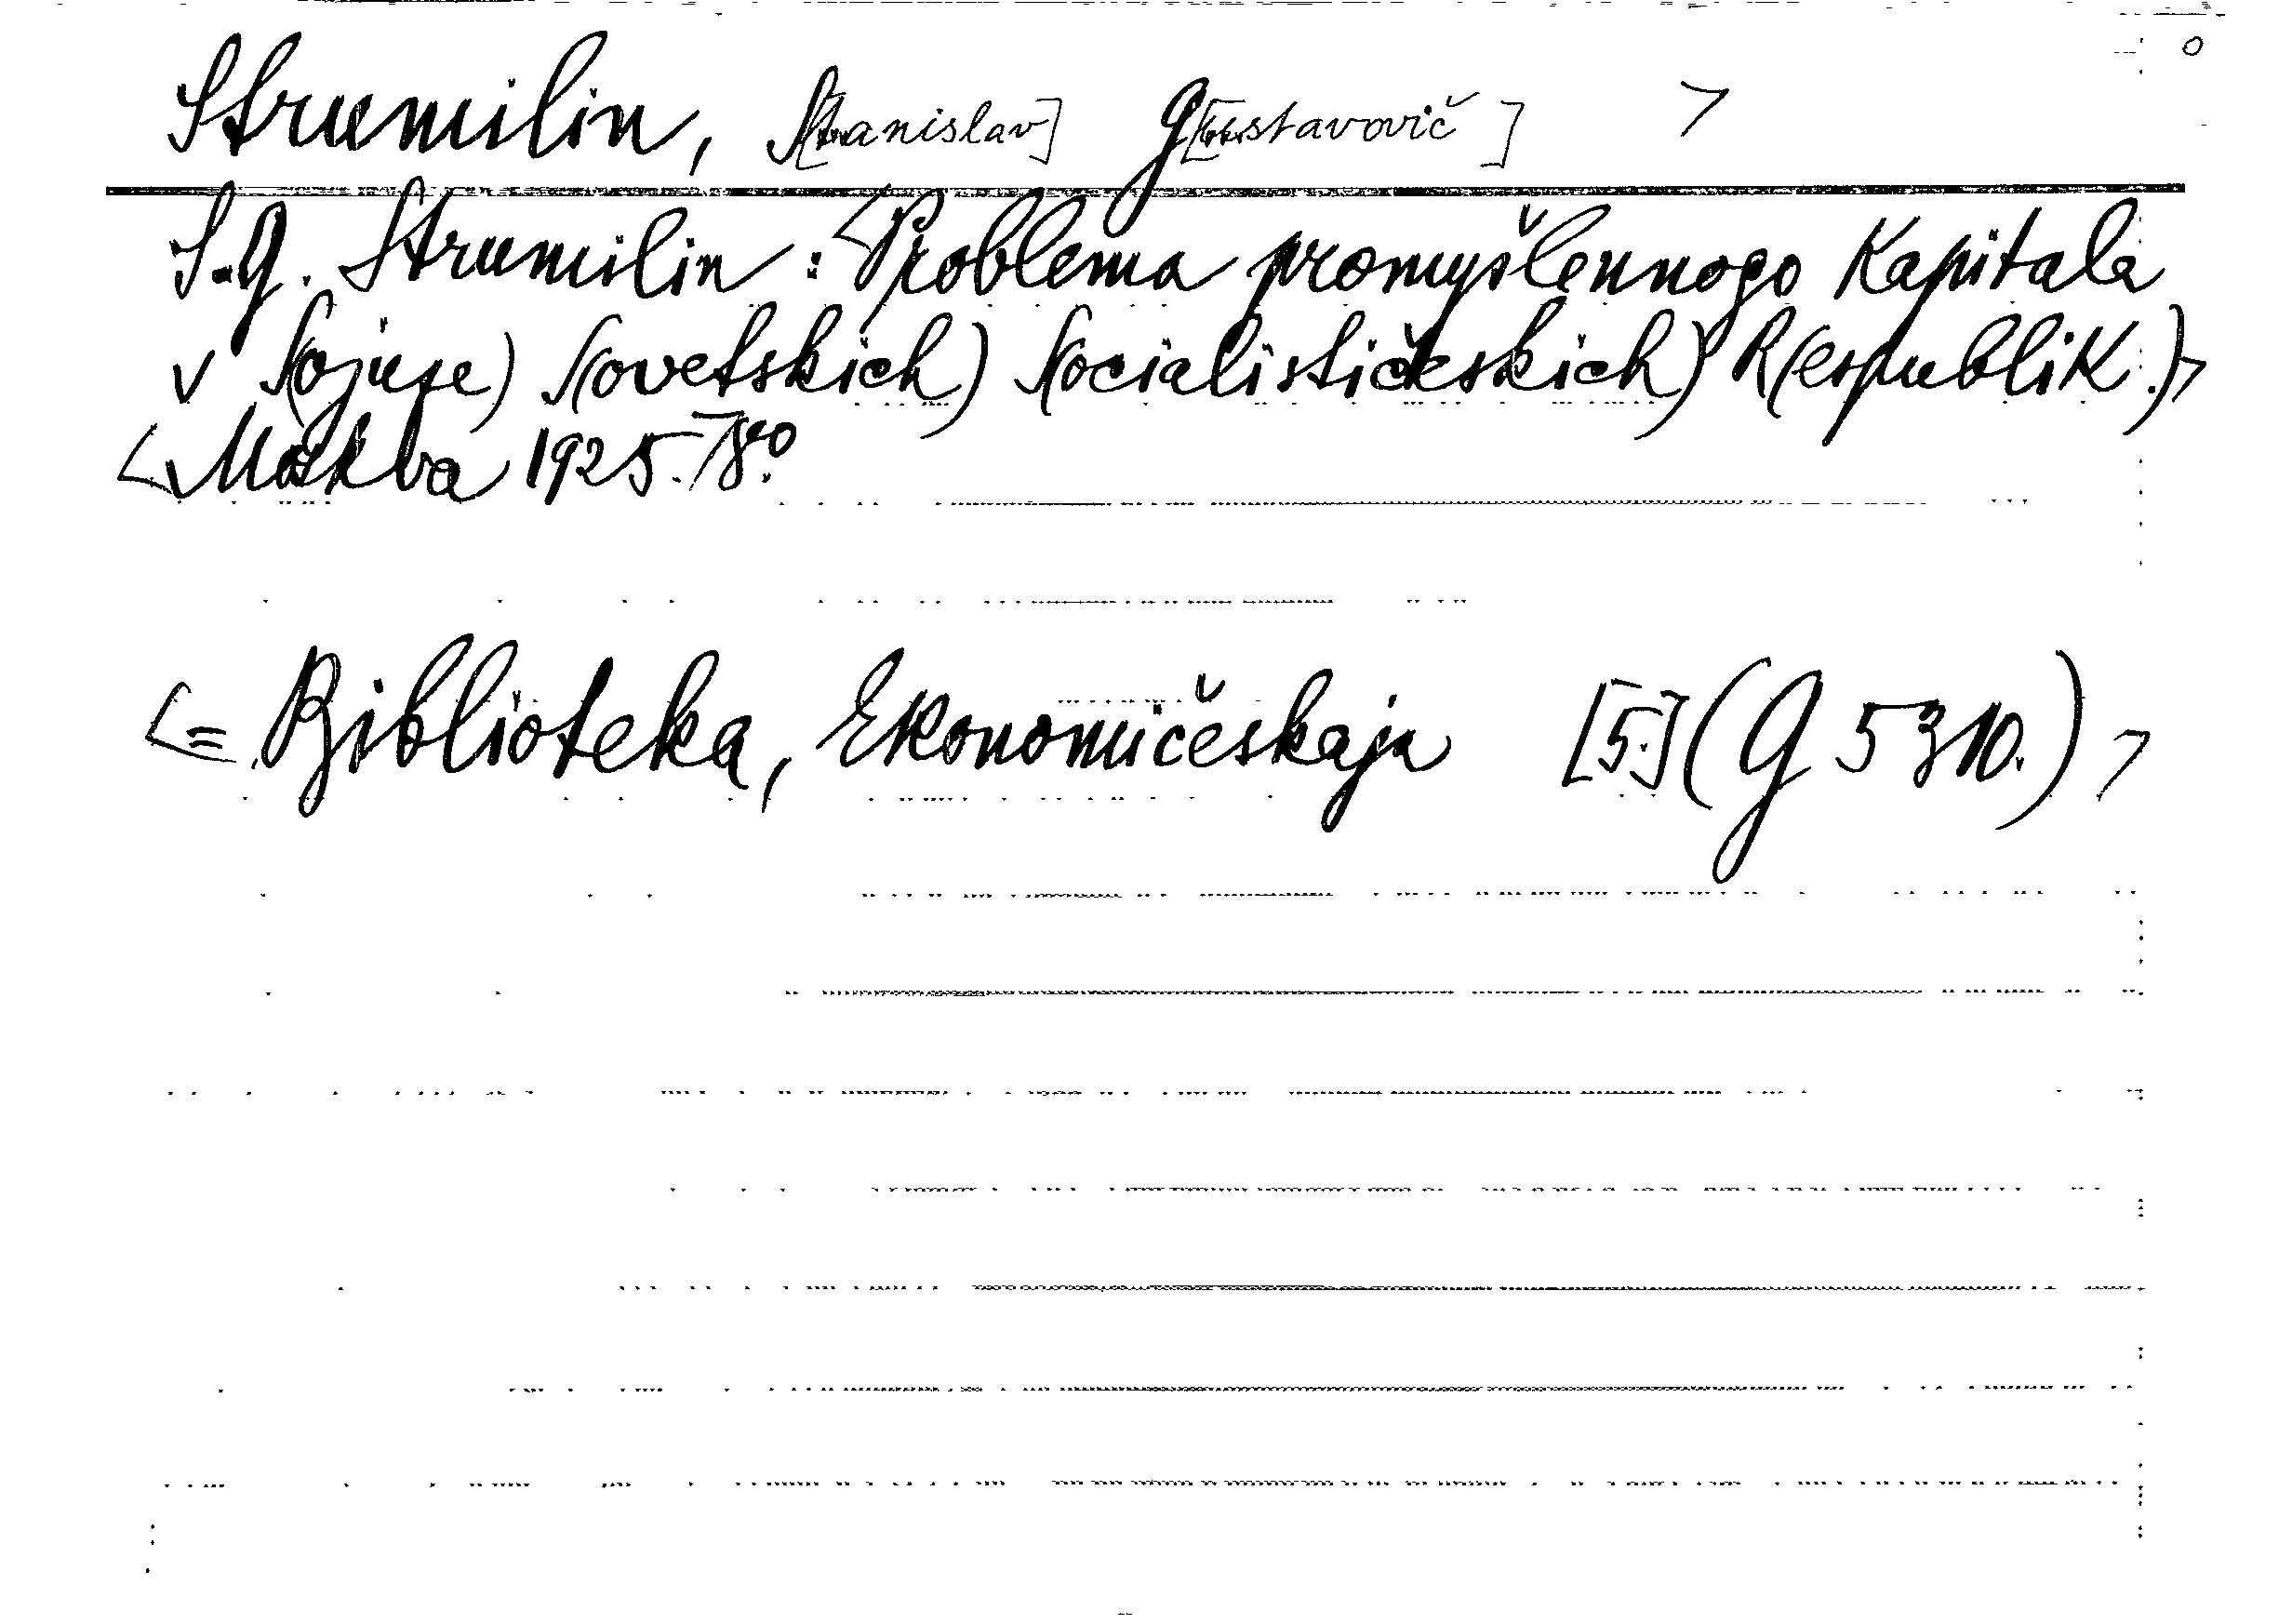 Strumilin, S[tanislav] G[ustavovič] >
S.G. Strumilin : <Problema promyšlennogo Kapitala
v S(ojuse) S(ovetskich) S(ocialističeskich) R(espublik.)>
<Moskva 1925. 8°.
<= Biblioteka, Ekonomičeskaja [5.] (G 5310.) >